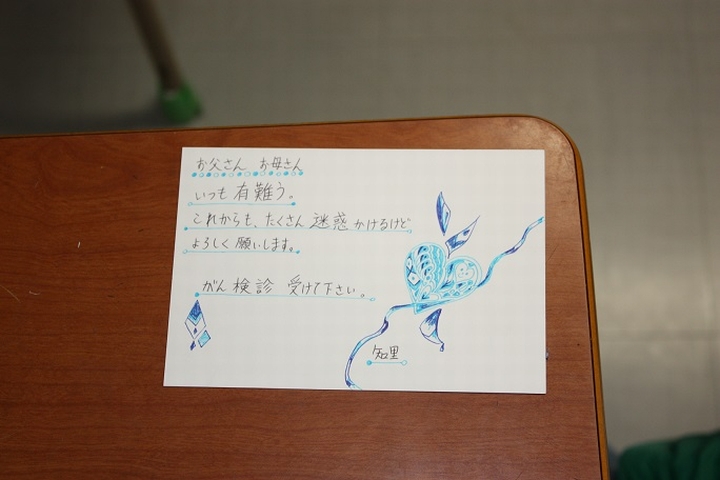 お父さん お母さん
いつも有難う。
これからも、たくさん迷惑かけるけど
よろしく願いします。
がん検診 受けて下さい。
知里